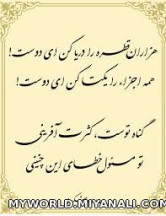 هزاران قطره را دریا کن ای دوست!
همه اجزاء را یکتا کن ای دوست!
گناه توست، کثرت آفرینی
تو مسئول خطای این چنینی
MYWORLD.MIYANALI.COM